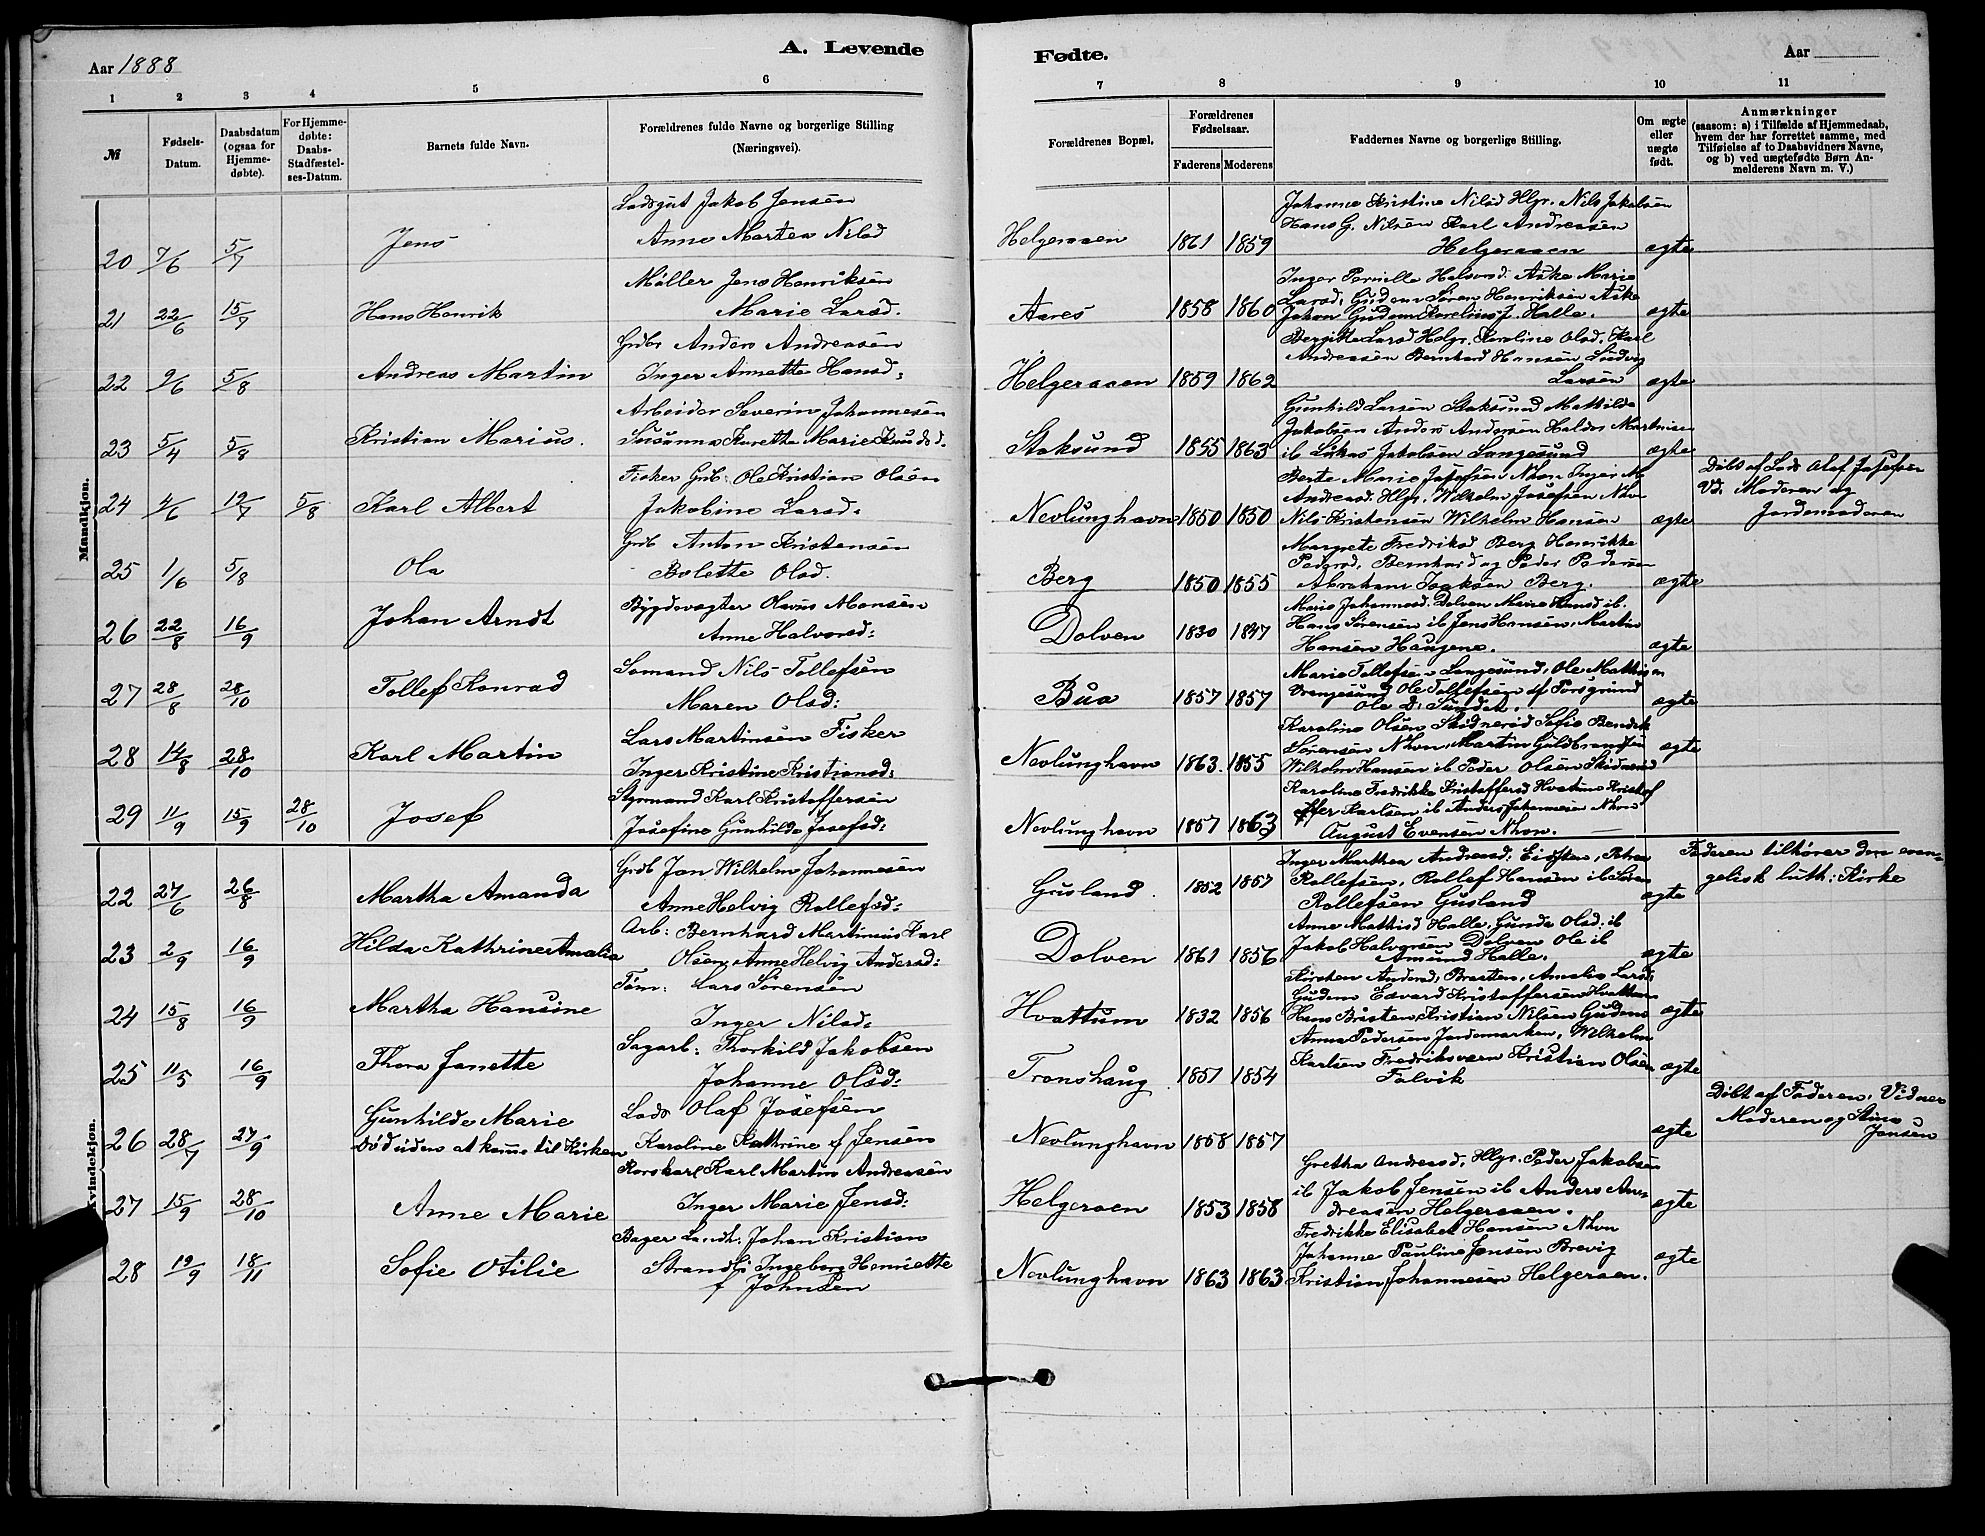 A. Levende
Fødte.
Aar 1888
Aar
1 2 3 4 5 6
7 8 9 10 11
№
Fødsels-Datum.
Daabsdatum (ogsaa for Hjemme-døbte).
For Hjemme-døbte: Daabs-Stadfæstel-ses-Datum.
Barnets fulde Navn.
Forældrenes fulde Navne og borgerlige Stilling
(Næringsvei).
Forældrenes Bopæl.
Forældrenes Fødselsaar.
Faderens Moderens
Faddernes Navne og borgerlige Stilling.
Om ægte eller uægte født.
Anmærkninger
(saasom: a) i Tilfælde af Hjemmedaab,
hvem der har forrettet samme, med
Tilføielse af to Daabsvidners Navne,
og b) ved uægtefødte Børn An-
melderens Navn m. V.)
Mandkjøn.
Lodsgut Jakob Jensen
Johanne Kristine Nilsd Hlgr. Nils Jakobsen
20 7/6 5/7 Jens Anne Martea Nilsd
Helgeraaen 1861 1859 Hans G. Nilsen Karl Andreasen
Helgeraaen ægte
Møller Jens Henriksen
Inger Pernille Halvorsd. Aske Marie
21 22/6 15/7 Hans Henrik Marie Larsd.
Aares 1858 1860 Larsd. Gudem Søren Henriksen Aske
Johan Gudem Karelius J. Halle. ægte
Grdbr Anders Andreasen
Bergitte Larsd Helgr. Karoline Olsd. Karl
22 9/6 5/8 Andreas Martin Inger Annette Hansd:
Helgeraaen 1859 1862 Andreasen Bernhard Hansen Ludvig
Larsen ægte
Arbeider Severin Johannesen
Gunhild Larsen Stoksund Mathilde
23 5/4 5/8 Kristian Marius. Susanna Karetha Marie Knudsd.
Stoksund 1855 1863 Jakobsen Anders Andersen Haldor Martinsen
ib Lukas Jakobsen Langesund ægte
Fisker Grb: Ole Kristian Olsen
Berte Marie Josefsen Nhvn Inger M.
24 4/6 19/7 5/8 Karl Albert Jakobine Larsd.
Nevlunghavn 1850 1850 Andreasd. Hlgr. Wilhelm Josefsen Nhvn
Nils Kristensen Wilhelm Hansen ægte
Døbt af Lods Olaf Josefsen
Vd. Moderen og
Jordemoderen
Grdb Anton Kristensen
Margrete Fredriksd Berg Henrikke
25 1/6 5/8 Ola Bolette Olsd.
Berg 1850 1855 Pedersd, Bernhard og Peder Pedersen
Abraham Isaksen Berg. ægte
Bygdevægter Olavus Monsen
Marie Johannesd. Dolven Maren Hansd ib.
26 22/8 16/9 Johan Arndt Anne Halvorsd:
Dolven 1830 1847 Hans Sørensen ib Jens Hansen, Martin
Hansen Haugene. ægte
Sømand Nils Tollefsen
Marie Tollefsen Langesund, Ole Mathisen
27 28/8 28/10 Tollef Konrad Maren Olsd:
Bua 1857 1857 Ole Tollefsen Porsgrund
Ole D. Sundet. ægte
Lars Martinsen Fisker
Karoline Olsen Skødnerød Sofie Bendik
28 14/8 28/10 Karl Martin Inger Kristine Kristiansd:
Nevlunghavn 1863. 1855 Sørensen Nhvn, Martin Guldbrandsen
Wilhelm Hansen ib Peder Olsen Skødnerød ægte
Styrmand Karl Kristoffersen
Karoline Fredrikke Kristoffersd Hvatum Kristof
29 11/9 15/9 28/10 Josef Josefine Gunhilde Josefsd:
Nevlunghavn 1857 1863 ffer Karlsen ib Anders Johannesen Nhvn
August Evensen Nhvn.
Kvindekjøn.
Grdb Jon Wilhelm Johannesen
Inger Marthea Andreasd. Eidsten, Petrea
22 27/6 26/8 Martha Amanda Anne Helvig Rollefsd:
Gusland. 1852 1857 Rollefsen, Rollef Hansen ib Søren
Rollefsen Gusland ægte
Faderen tilhører den evan-
gelisk luth: Kirke
Arb: Bernhard Martinius Karl
Anne Mathisd Halle, Gunda Olsd: ib
23 2/9 16/9 Hilda Kathrine Amalia Olsen, Anne Helvig Andersd:
Dolven 1861 1856 Jakob Halvorsen Dolven Ole ib
Amund Halle. ægte
Tøm: Lars Sørensen
Kirsten Andersd, Bratten, Amalie Larsd:
24 15/8 16/9 Martha Hansine Inger Nilsd:
Hvattum 1832 1856 Gudem Edvard Kristoffersen Hvattum
Hans Bråten, Kristian Nilsen Gudem ægte
Sagarb: Thorkild Jakobsen
Anna Pedersen Jordemarken, Wilhelm
25 11/5 16/9 Thora Janette Johanne Olsd:
Tronshaug 1851 1854 Karlsen Fredriksværn Kristian Olsen
Falvik ægte
Gunhilde Marie Lods Olaf Josefsen
26 28/7 27/9 Død uden at komme til Kirken Karoline Kathrine f Jensen
Nevlunghavn 1858 1857 ægte
Døbt af Faderen, Vidner
Moderen og Stine
Jensen
Karl Martin Andreasen
Gretha Andreasd. Hlgr. Peder Jakobsen
27 15/9 28/10 Anne Marie Inger Marie Jensd:
Helgeraaen 1853 1858 ib Jakob Jensen ib Anders An-
dreasen Helgeraaen. ægte
Bager Landh: Johan Kristian
Fredrikke Elisabet Hansen Nhvn
28 19/9 18/11 Sofie Otilie Strandli Ingeborg Henriette
f Johnsen
Nevlunghavn 1863 1863 Johanne Pauline Jensen Brevig
Kristian Johannesen Helgeraaen. ægte